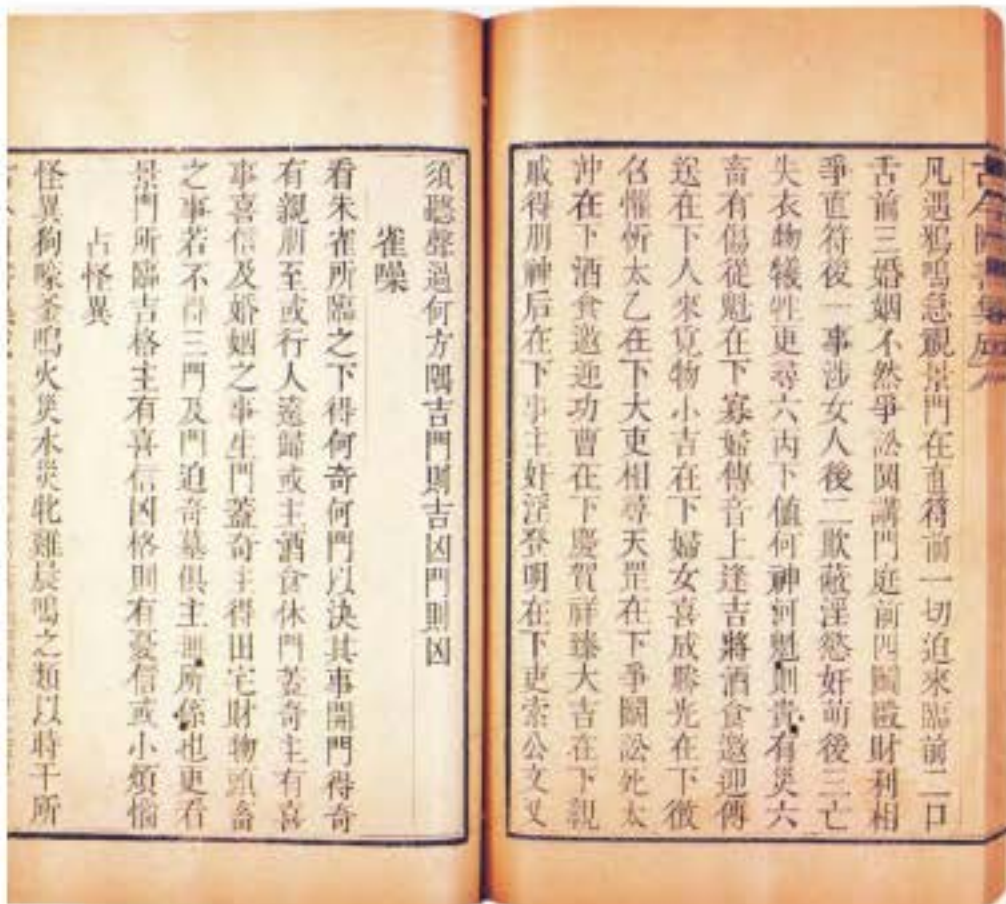 古今圖書集成
凡遇鴉鳴急視景門在直符前一切迫來臨前二口
舌前三婚姻不然爭訟鬭講門庭前四鬭毆財利相
爭直符後一事涉女人後二欺蔽淫慾奸萌後三亡
失衣物犧牲更尋六丙下値何神河魁則貴有災六
畜有傷從魁在下寡婦傳音上逢吉將酒食邀迎傳
送在下人來覓物小吉在下婦女喜成勝光在下徵
召懽忻太乙在下大吏相尋天罡在下爭鬭訟死太
沖在下酒食邀迎功曹在下慶賀祥臻大吉在下親
戚得朋神后在下事主奸淫登明在下吏索公文又
須聽聲過何方隅吉門則吉凶門則凶
雀噪
看朱雀所臨之下得何奇何門以決其事開門得奇
有親朋至或行人遠歸或主酒食休門蓋奇主有喜
事喜信及婚姻之事生門蓋奇主得田宅財物頭畜
之事若不得三門及門迫奇墓俱主無所係也更看
景門所臨吉格主有喜信凶格則有憂信或小煩惱
占怪異
怪異狗嗥釜鳴火災水災牝雞晨鳴之類以時干所